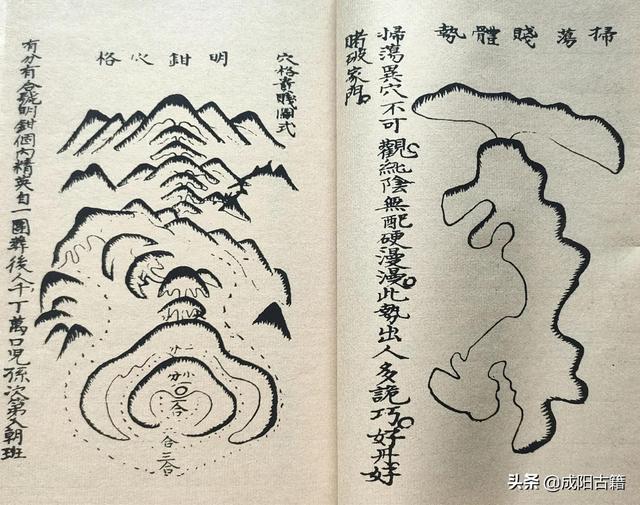 掃蕩賤體勢
掃蕩異穴不可觀純陰無配硬漫漫此勢出人多詭巧好好
賭破家門
穴格貴賤圖式
明鉗心格
有分有合號明鉗個內精英自一團葬後人千丁萬口兒孫次第入朝班
分
小
二合
合
三合
头条 @成阳古籍